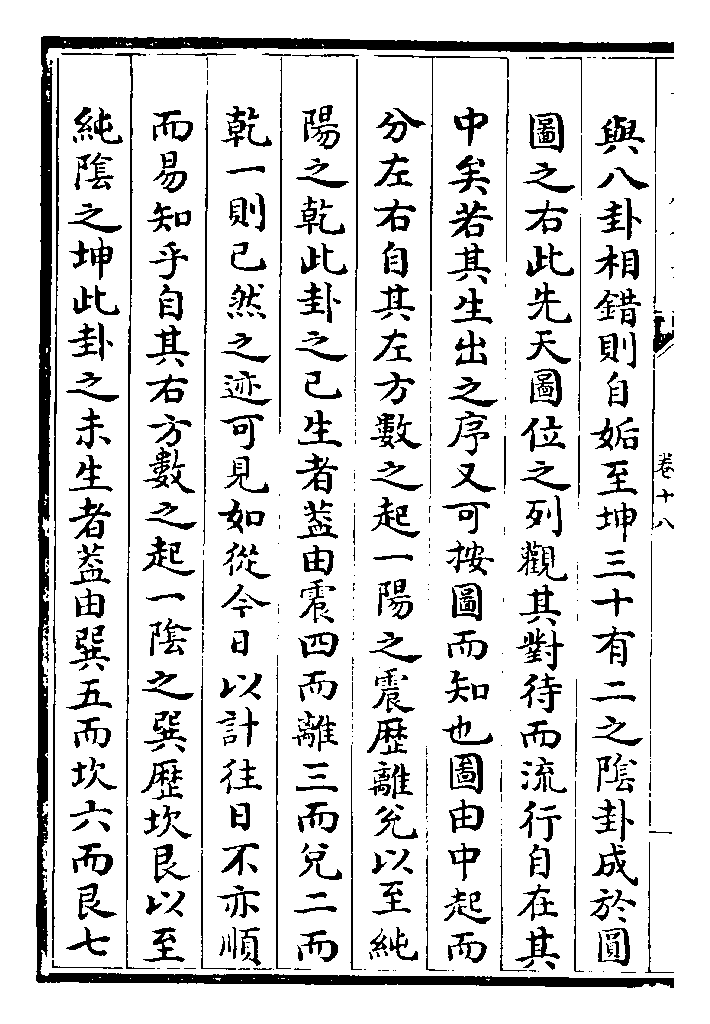 卷十八
與八卦相錯則自姤至坤三十有二之隂卦成於圓
圖之右此先天圖位之列觀其對待而流行自在其
中矣若其生出之序又可按圖而知也圖由中起而
分左右自其左方數之起一陽之震歴離兊以至純
陽之乾此卦之已生者葢由震四而離三而兊二而
乾一則已然之迹可見如從今日以計往日不亦順
而易知乎自其右方數之起一隂之巽歴坎艮以至
純隂之坤此卦之未生者葢由巽五而坎六而艮七